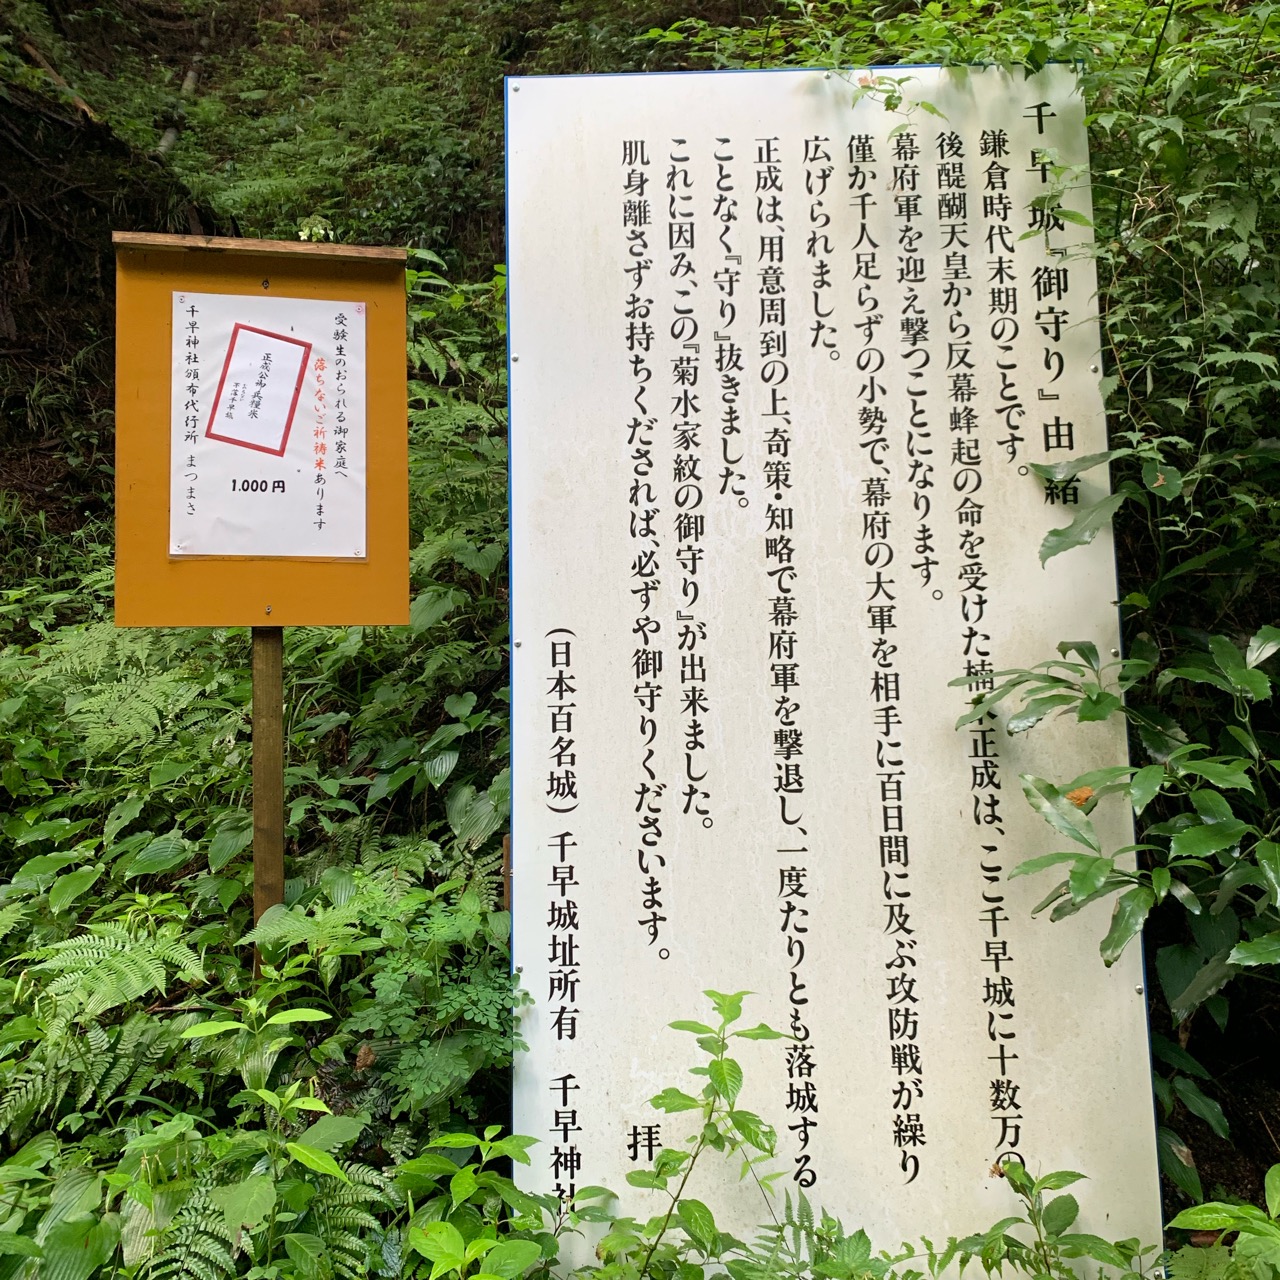 千早城『御守り』由緒
鎌倉時代末期のことです。
後醍醐天皇から反幕蜂起の命を受けた楠木正成は、ここ千早城に十数万の
幕府軍を迎え撃つことになります。
僅か千人足らずの小勢で、幕府の大軍を相手に百日間に及ぶ攻防戦が繰り
広げられました。
正成は、用意周到の上、奇策・知略で幕府軍を撃退し、一度たりとも落城する
ことなく『守り』抜きました。
これに因み、この『菊水家紋の御守り』が出来ました。
肌身離さずお持ちくだされば、必ずや御守りくださいます。
拝
(日本百名城)千早城址所有 千早神社
受験生のおられる御家庭へ
落ちないご祈祷米あります
正成公御兵糧米
不落千早城
1.000円
千早神社頒布代行所 まつまさ